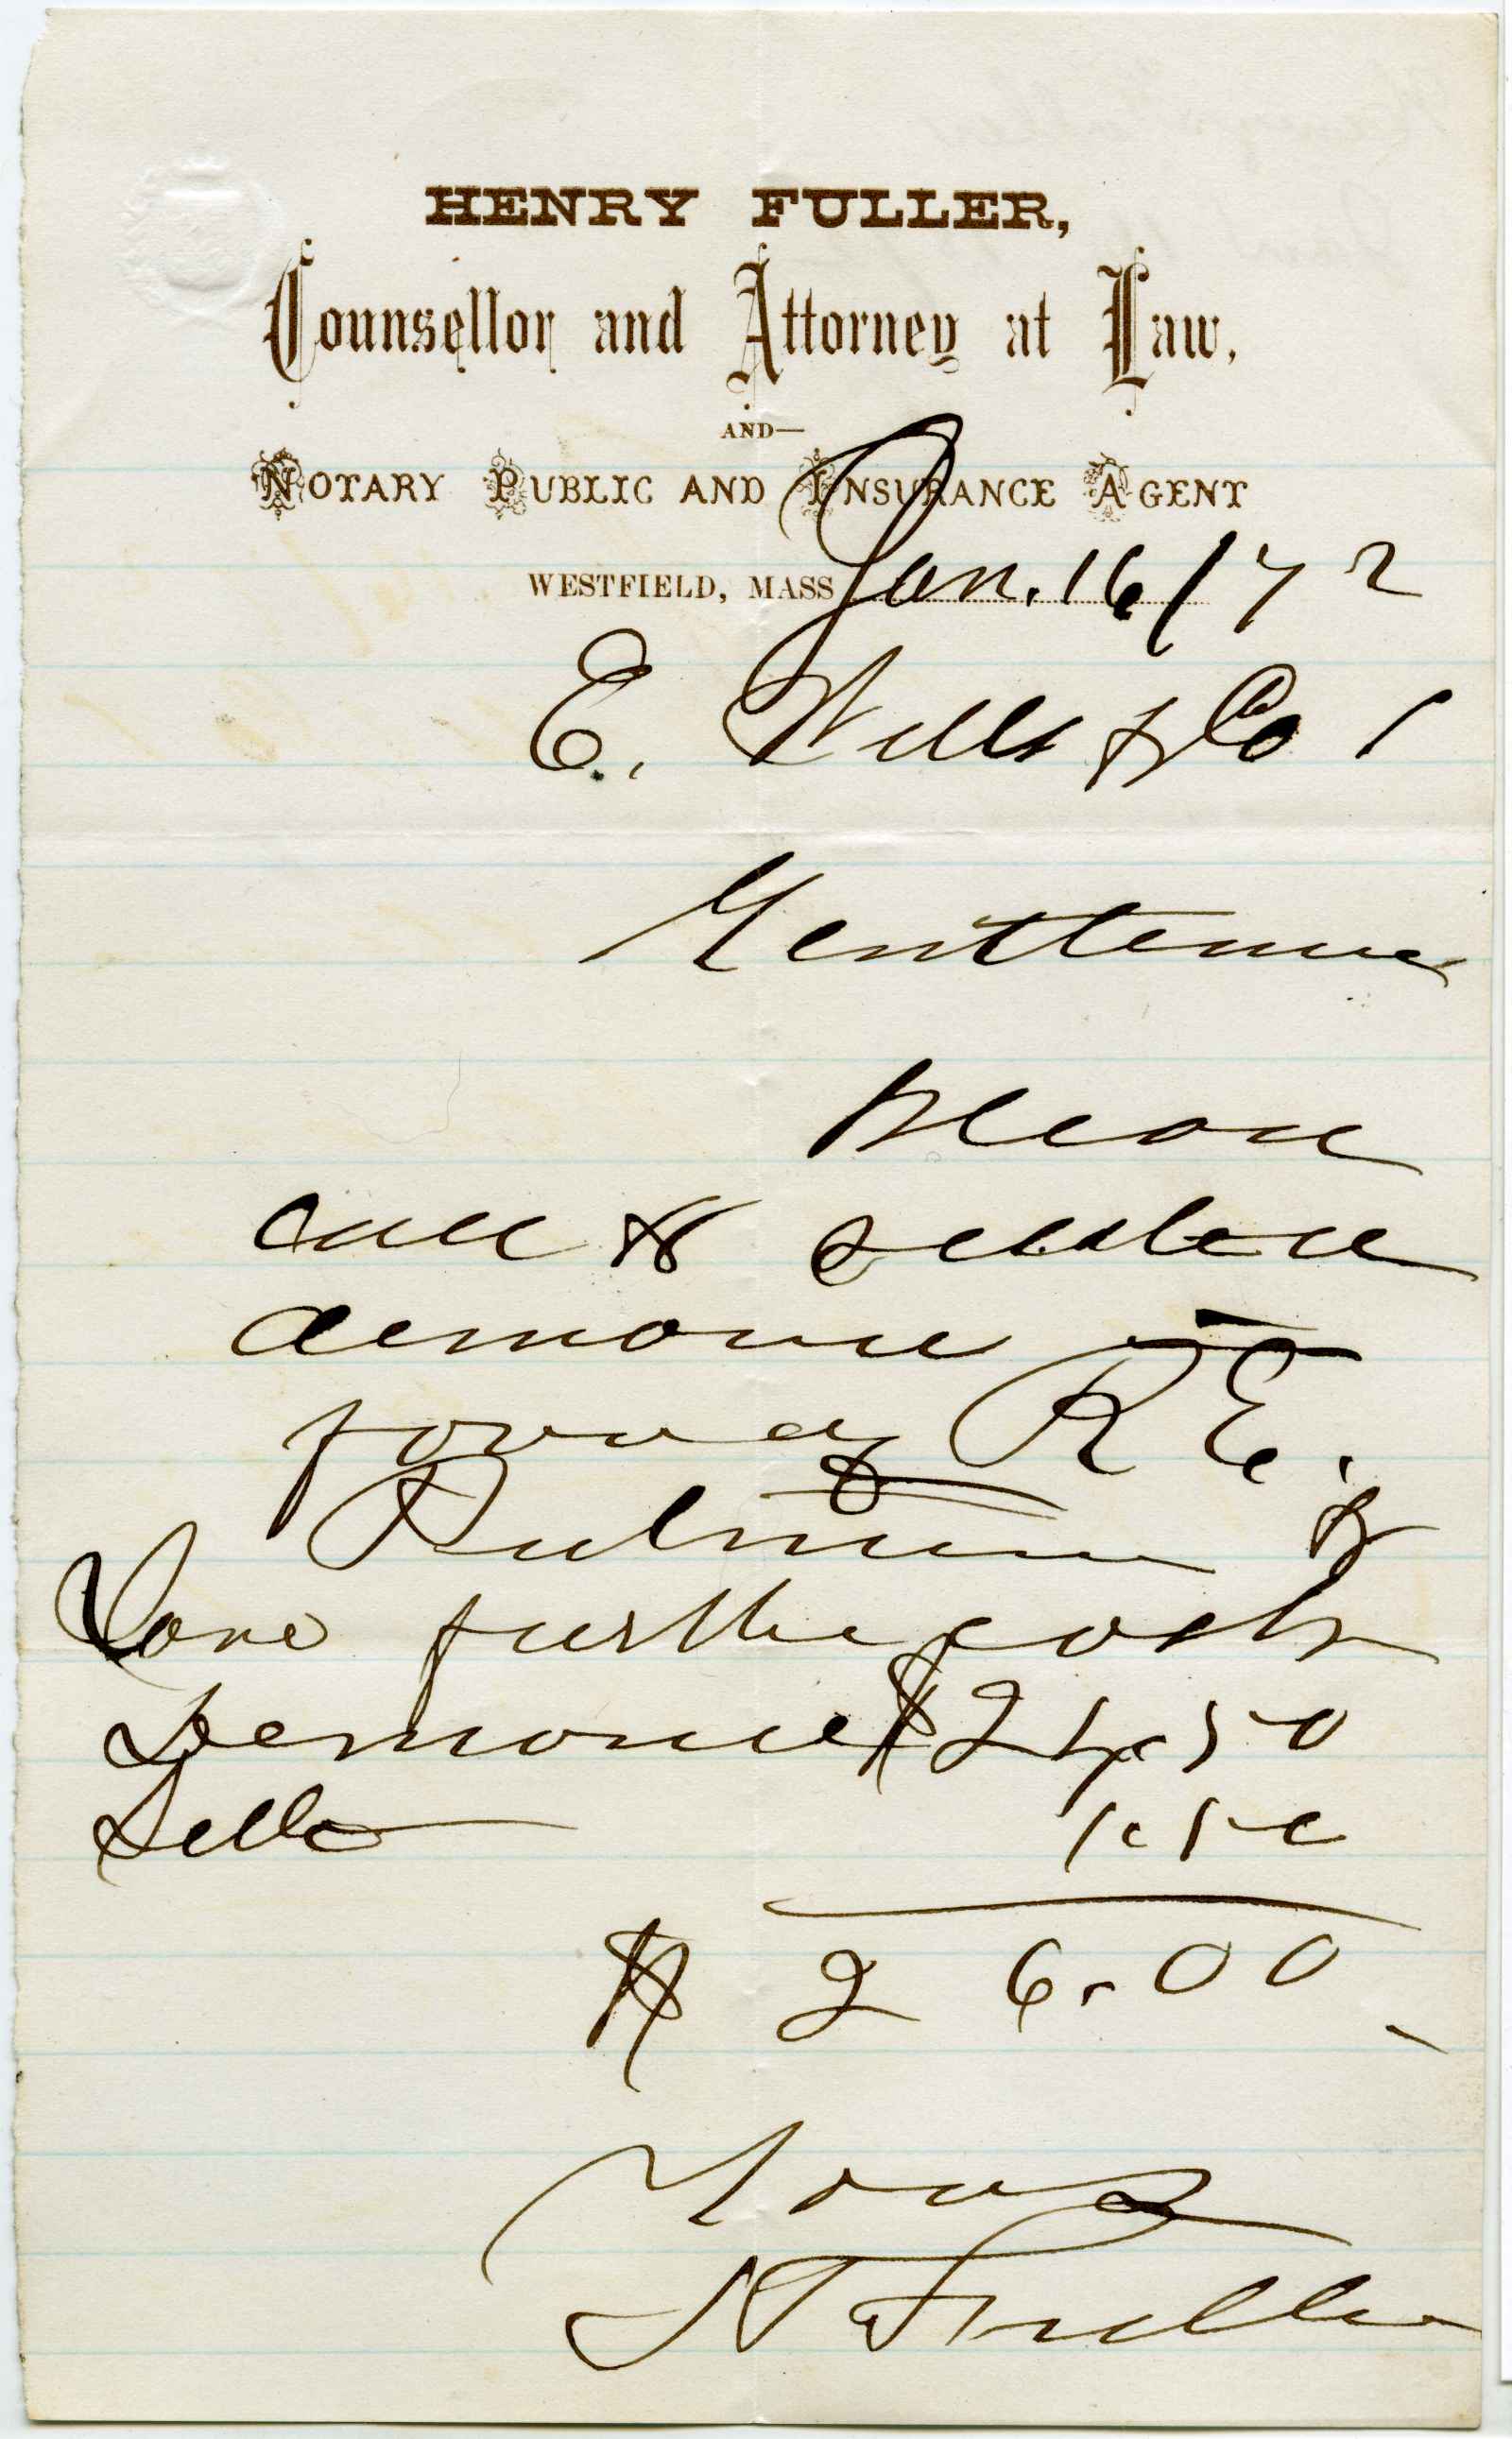 HENRY FULLER,
Counsellor and Attorney at Law,
AND—
NOTARY PUBLIC AND INSURANCE AGENT
WESTFIELD, MASS Jan. 16/72
E. Wells & Co
Gentlemen
Please
call & settle
demand in
favor of R E.
Pulman &
save further costs
Demand $24.50
Letter 1.50
$ 26.00
Yours
H Fuller